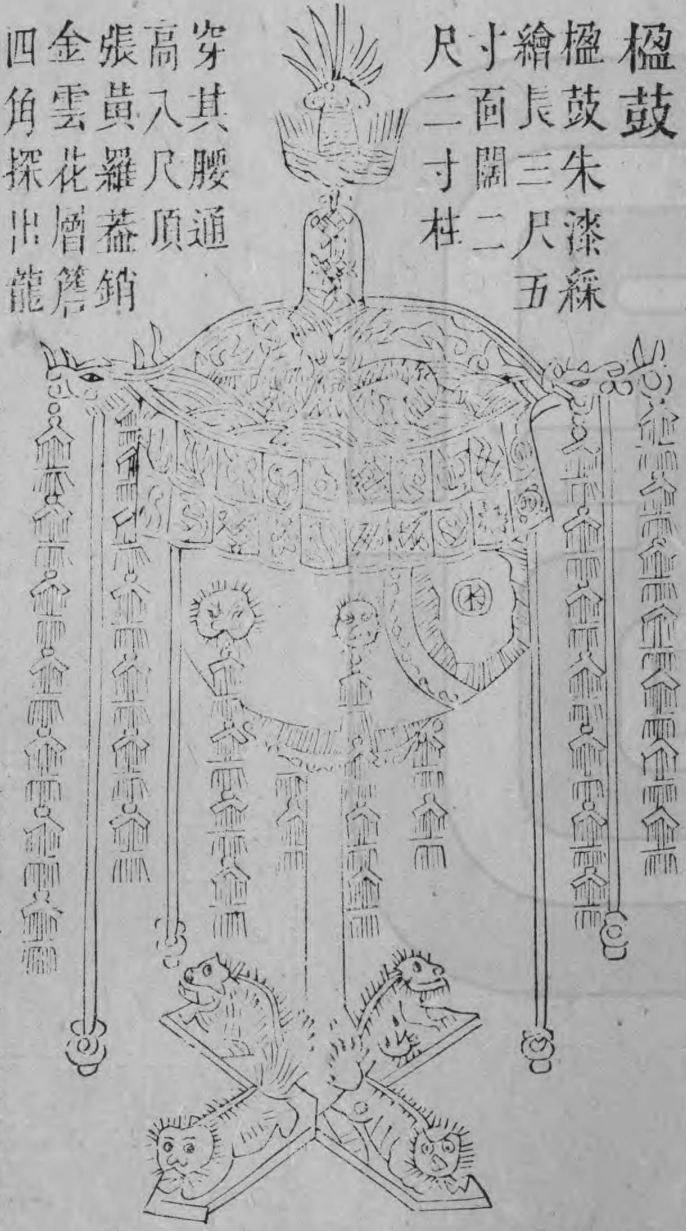 楹鼓
楹鼓朱漆綵
繪長三尺五
寸面闊二
尺二寸柱
穿其腰通
高八尺頂
張黃羅葢銷
金雲花層簷
四角探出龍